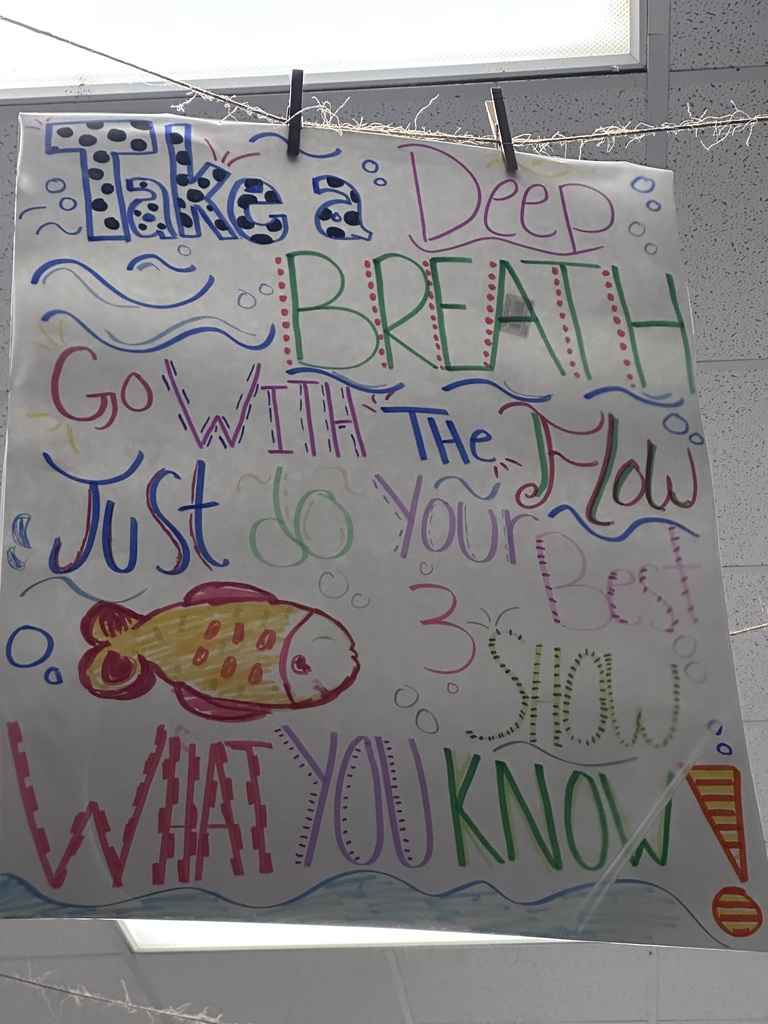 Take a Deep
BREATH
Go WITH THe Flow
JUST do Your Best
3 SHOW
WHAT YOU KNOW!